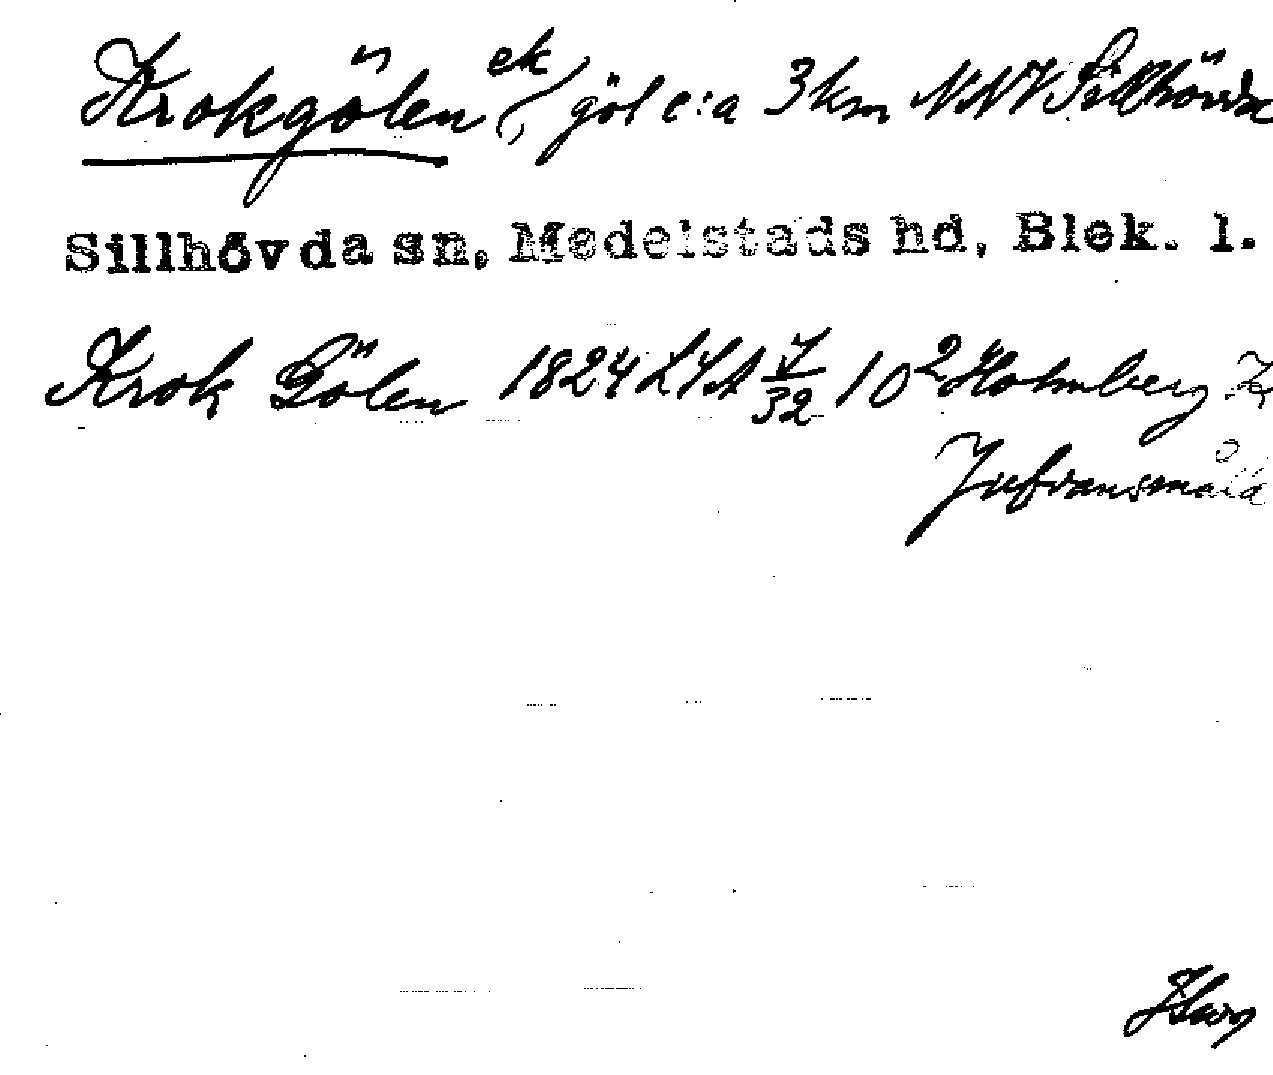 Krokgölen ek göl c:a 3 km NNV Sillhövda
Sillhövda sn, Medelstads hd, Blek. l.
Krok Gölen 1824 LSA 7/32 10² Holmberg
Jufvansmåla